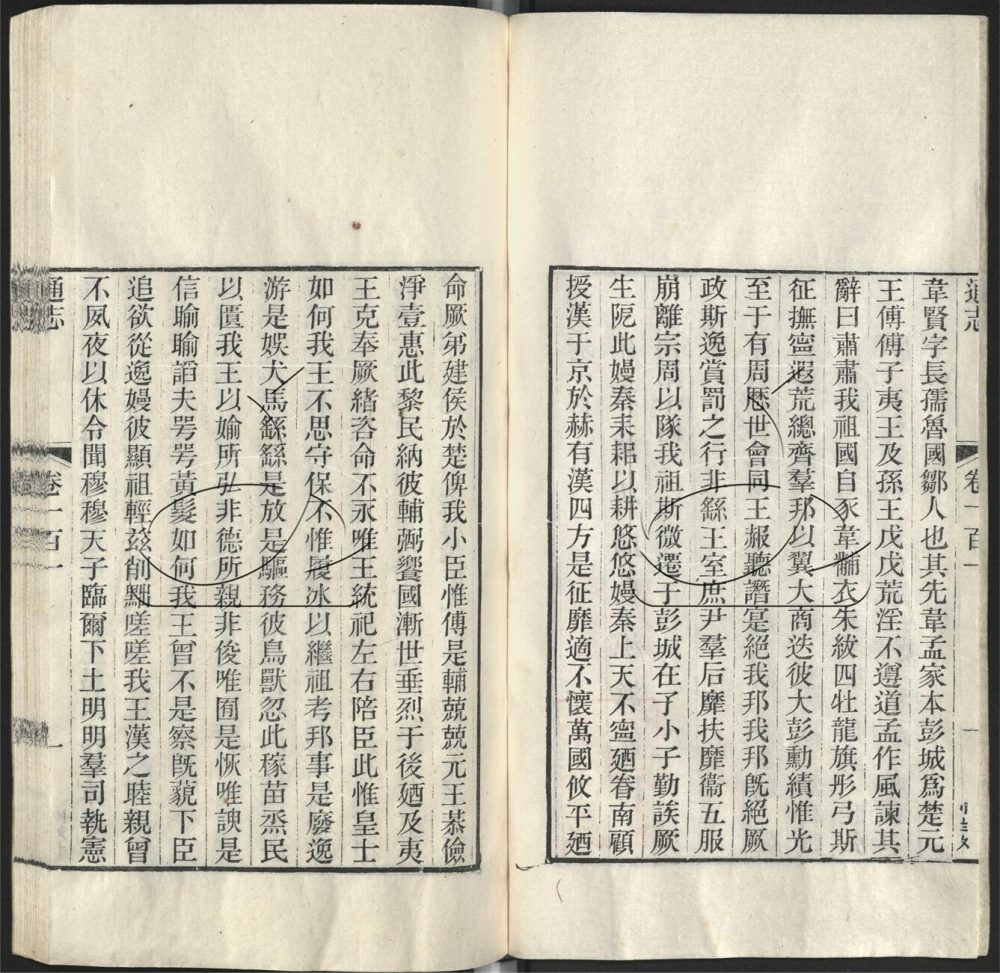 通志
卷一百一
一
韋賢字長孺魯國鄒人也其先韋孟家本彭城爲楚元
王傅傅子夷王及孫王戊戊荒淫不遵道孟作風諫其
辭曰肅肅我祖國自豕韋黼衣朱紱四牡龍旗彤弓斯
征撫寧遐荒總齊羣邦以翼大商迭彼大彭勳績惟光
至于有周歷世會同王赧聽譖寔絕我邦我邦旣絕厥
政斯逸賞罰之行非繇王室庶尹羣后靡扶靡衞五服
崩離宗周以隊我祖斯微遷于彭城在予小子勤誒厥
生阨此嫚秦耒耜以耕悠悠嫚秦上天不寧廼眷南顧
授漢于京於赫有漢四方是征靡適不懷萬國攸平廼
命厥弟建侯於楚俾我小臣惟傅是輔兢兢元王恭儉
淨壹惠此黎民納彼輔弼饗國漸世垂烈于後廼及夷
王克奉厥緒咨命不永唯王統祀左右陪臣此惟皇士
如何我王不思守保不惟履冰以繼祖考邦事是廢逸
游是娛犬馬繇繇是放是驅務彼鳥獸忽此稼苗烝民
以匱我王以媮所弘非德所親非俊唯囿是恢唯諛是
信睮睮諂夫咢咢黃髮如何我王曾不是察旣藐下臣
追欲從逸嫚彼顯祖輕茲削黜嗟嗟我王漢之睦親曾
不夙夜以休令聞穆穆天子臨爾下土明明羣司執憲
通志
卷一百一
一